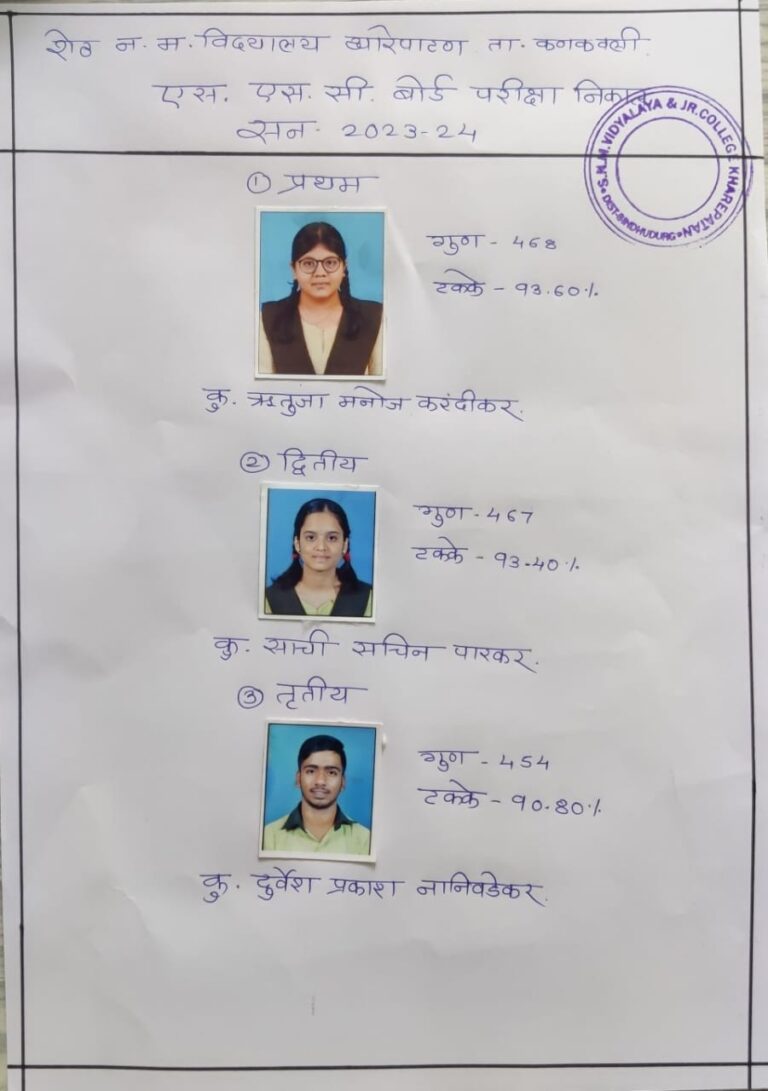 शेठ न. म. विद्यालय खारेपाटण ता. कणकवली.
एस. एस. सी. बोर्ड परीक्षा निकाल
सन- 2023-24
S.N.M. VIDYALAYA & JR. COLLEGE KHAREPATAN
DIST-SINDHUDURG
① प्रथम
गुण - 468
टक्के - 93.60%
कु. ऋतुजा मनोज करंदीकर.
② द्वितीय
गुण - 467
टक्के - 93.40%
कु. साची सचिन पारकर.
③ तृतीय
गुण - 454
टक्के - 90.80%
कु. दुर्वेश प्रकाश नानिवडेकर.